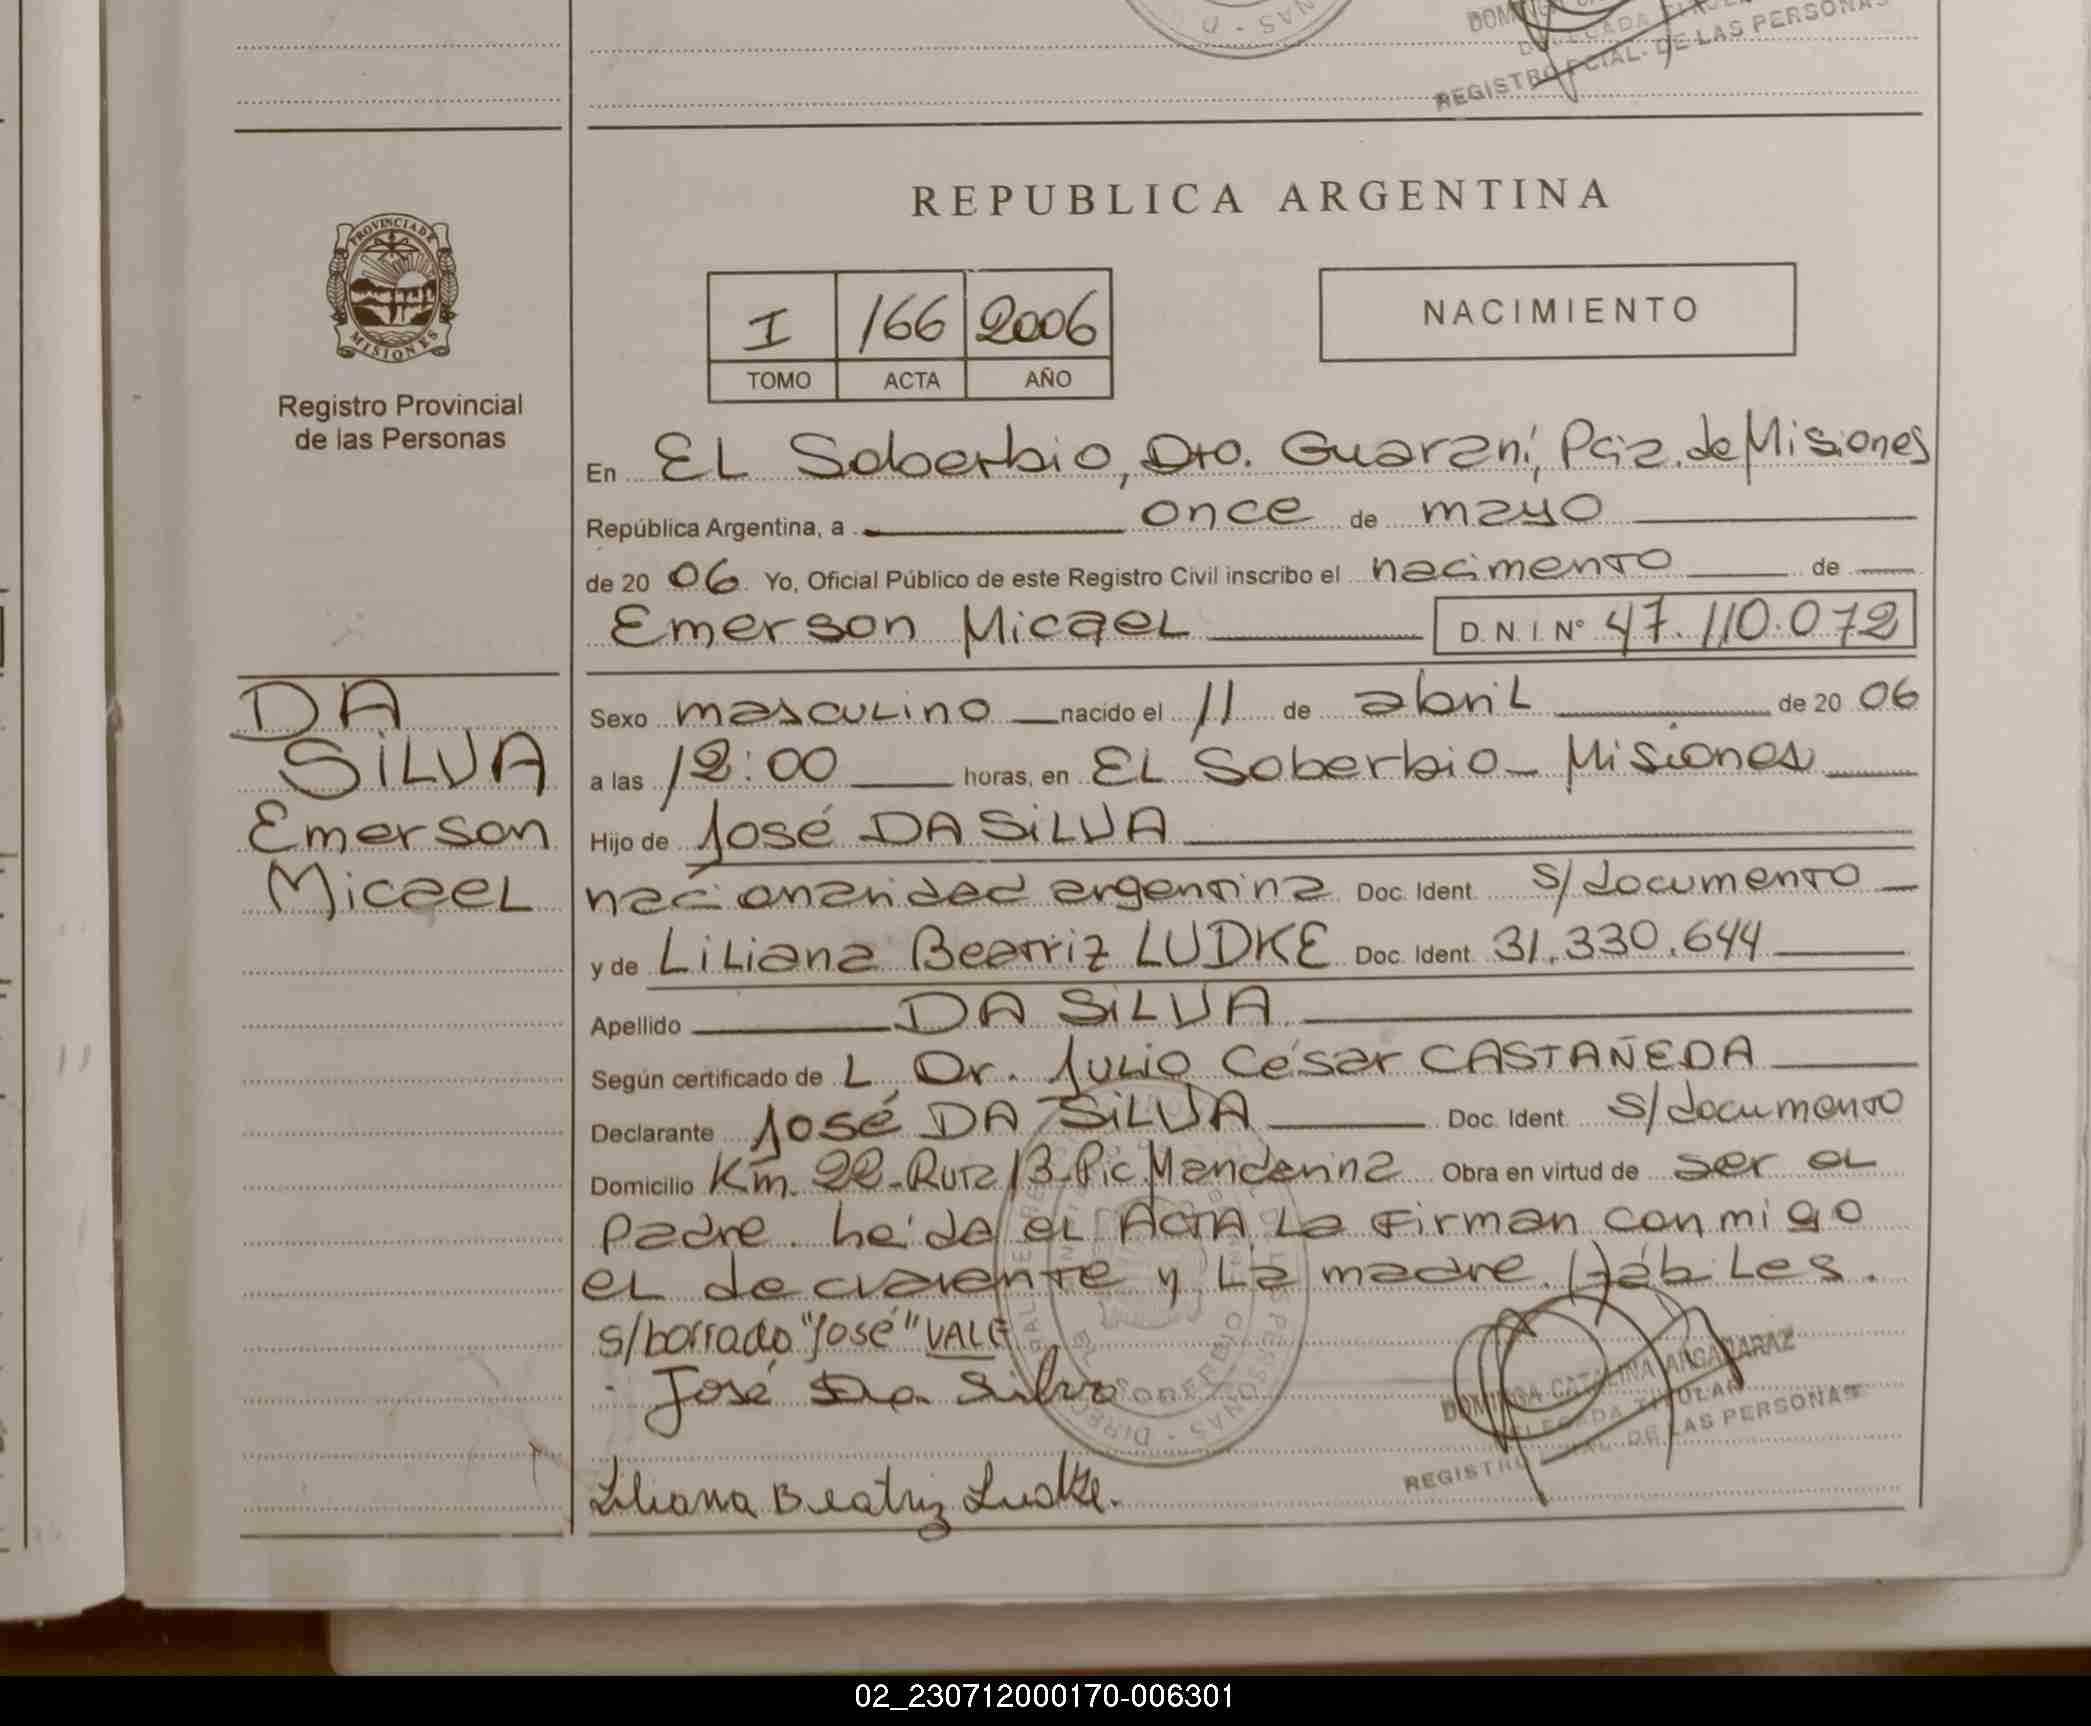 DOMINGA
DELEGADA TITULAR
REGISTRO PCIAL. DE LAS PERSONAS
PROVINCIA DE
MISIONES
Registro Provincial
de las Personas
REPUBLICA ARGENTINA
I 166 2006
TOMO ACTA AÑO
NACIMIENTO
En EL Soberbio, Dto. Guaraní, Pcia. de Misiones
República Argentina, a once de mayo
de 20 06 Yo, Oficial Público de este Registro Civil inscribo el nacimento de
Emerson Micael D.N.I Nº 47.110.072
DA
SILVA
Emerson
Micael
Sexo masculino nacido el 11 de abril de 20 06
a las 12:00 horas, en EL Soberbio - Misiones
Hijo de José DA SILVA
nacionalidad argentina Doc. Ident. s/documento
y de Liliana Beatriz LUDKE Doc. Ident. 31.330.644
Apellido DA SILVA
Según certificado de L Dr. Julio César CASTAÑEDA
Declarante José DA SILVA Doc. Ident. s/documento
Domicilio Km. 22-Ruta 13-Pic. Mandarina Obra en virtud de ser el
padre. Leída el ACTA La Firman conmigo
el declarante y La madre. Hábiles.
s/borrado "José" VALE
José Da Silva
Liliana Beatriz Ludke.
DOMINGA CATALINA ARGAÑARAZ
DELEGADA TITULAR
REGISTRO PCIAL. DE LAS PERSONAS
EL SOBERBIO
02_230712000170-006301